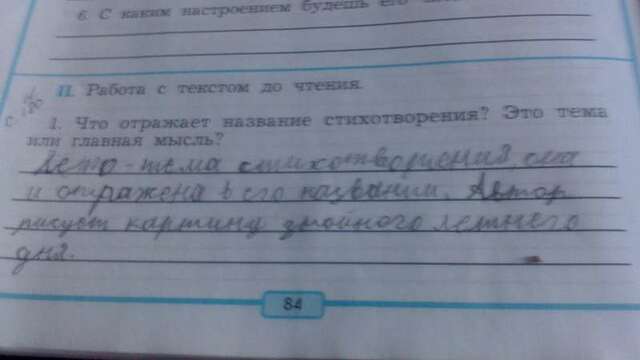 6. С каким настроением будешь его
II. Работа с текстом до чтения.
с.
1. Что отражает название стихотворения? Это тема
или главная мысль?
Лето - тема стихотворения, она
и отражена в его названии. Автор
рисует картину знойного летнего
дня.
84